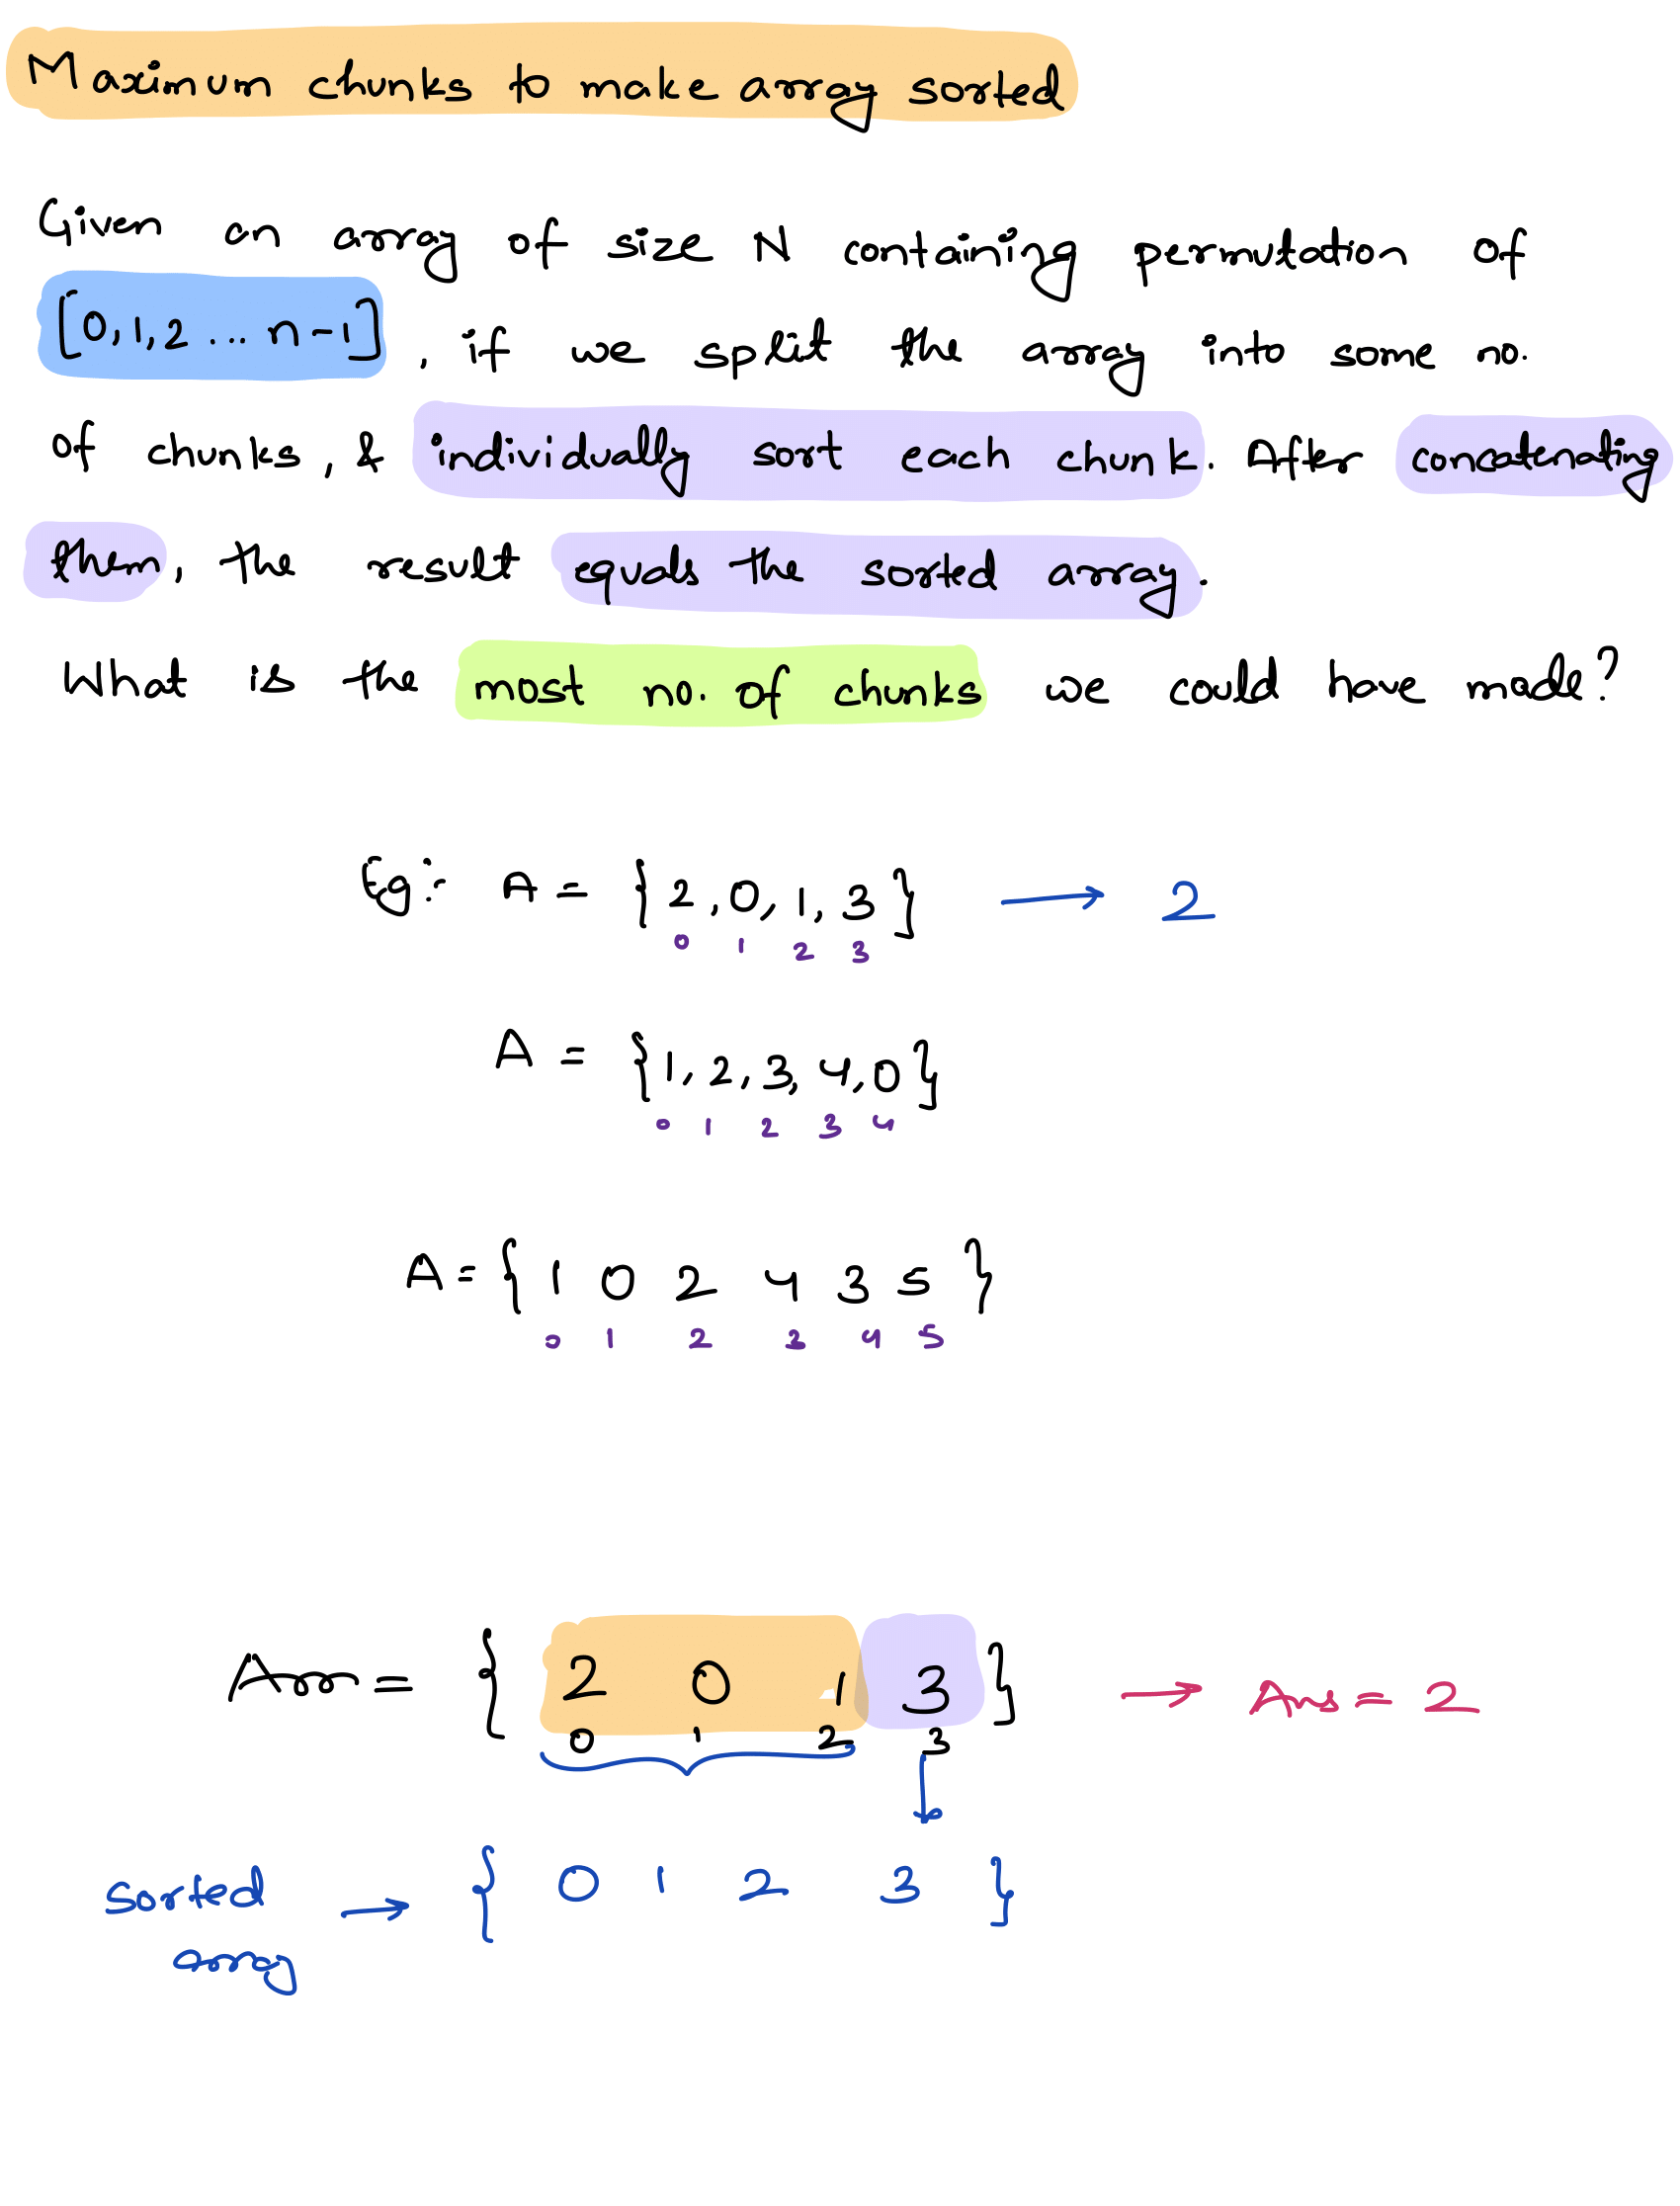 Maximum chunks to make array sorted
Given an array of size N containing permutation of
[0,1,2 ... n-1], if we split the array into some no.
of chunks, & individually sort each chunk. After concatenating
them, the result equals the sorted array.
What is the most no. of chunks we could have made?
Eg:- A = {2,0,1,3} → 2
0 1 2 3
A = {1,2,3,4,0}
0 1 2 3 4
A = { 1 0 2 4 3 5 }
0 1 2 3 4 5
Arr = { 2 0 1 3 } → Ans = 2
0 1 2 3
sorted array → { 0 1 2 3 }